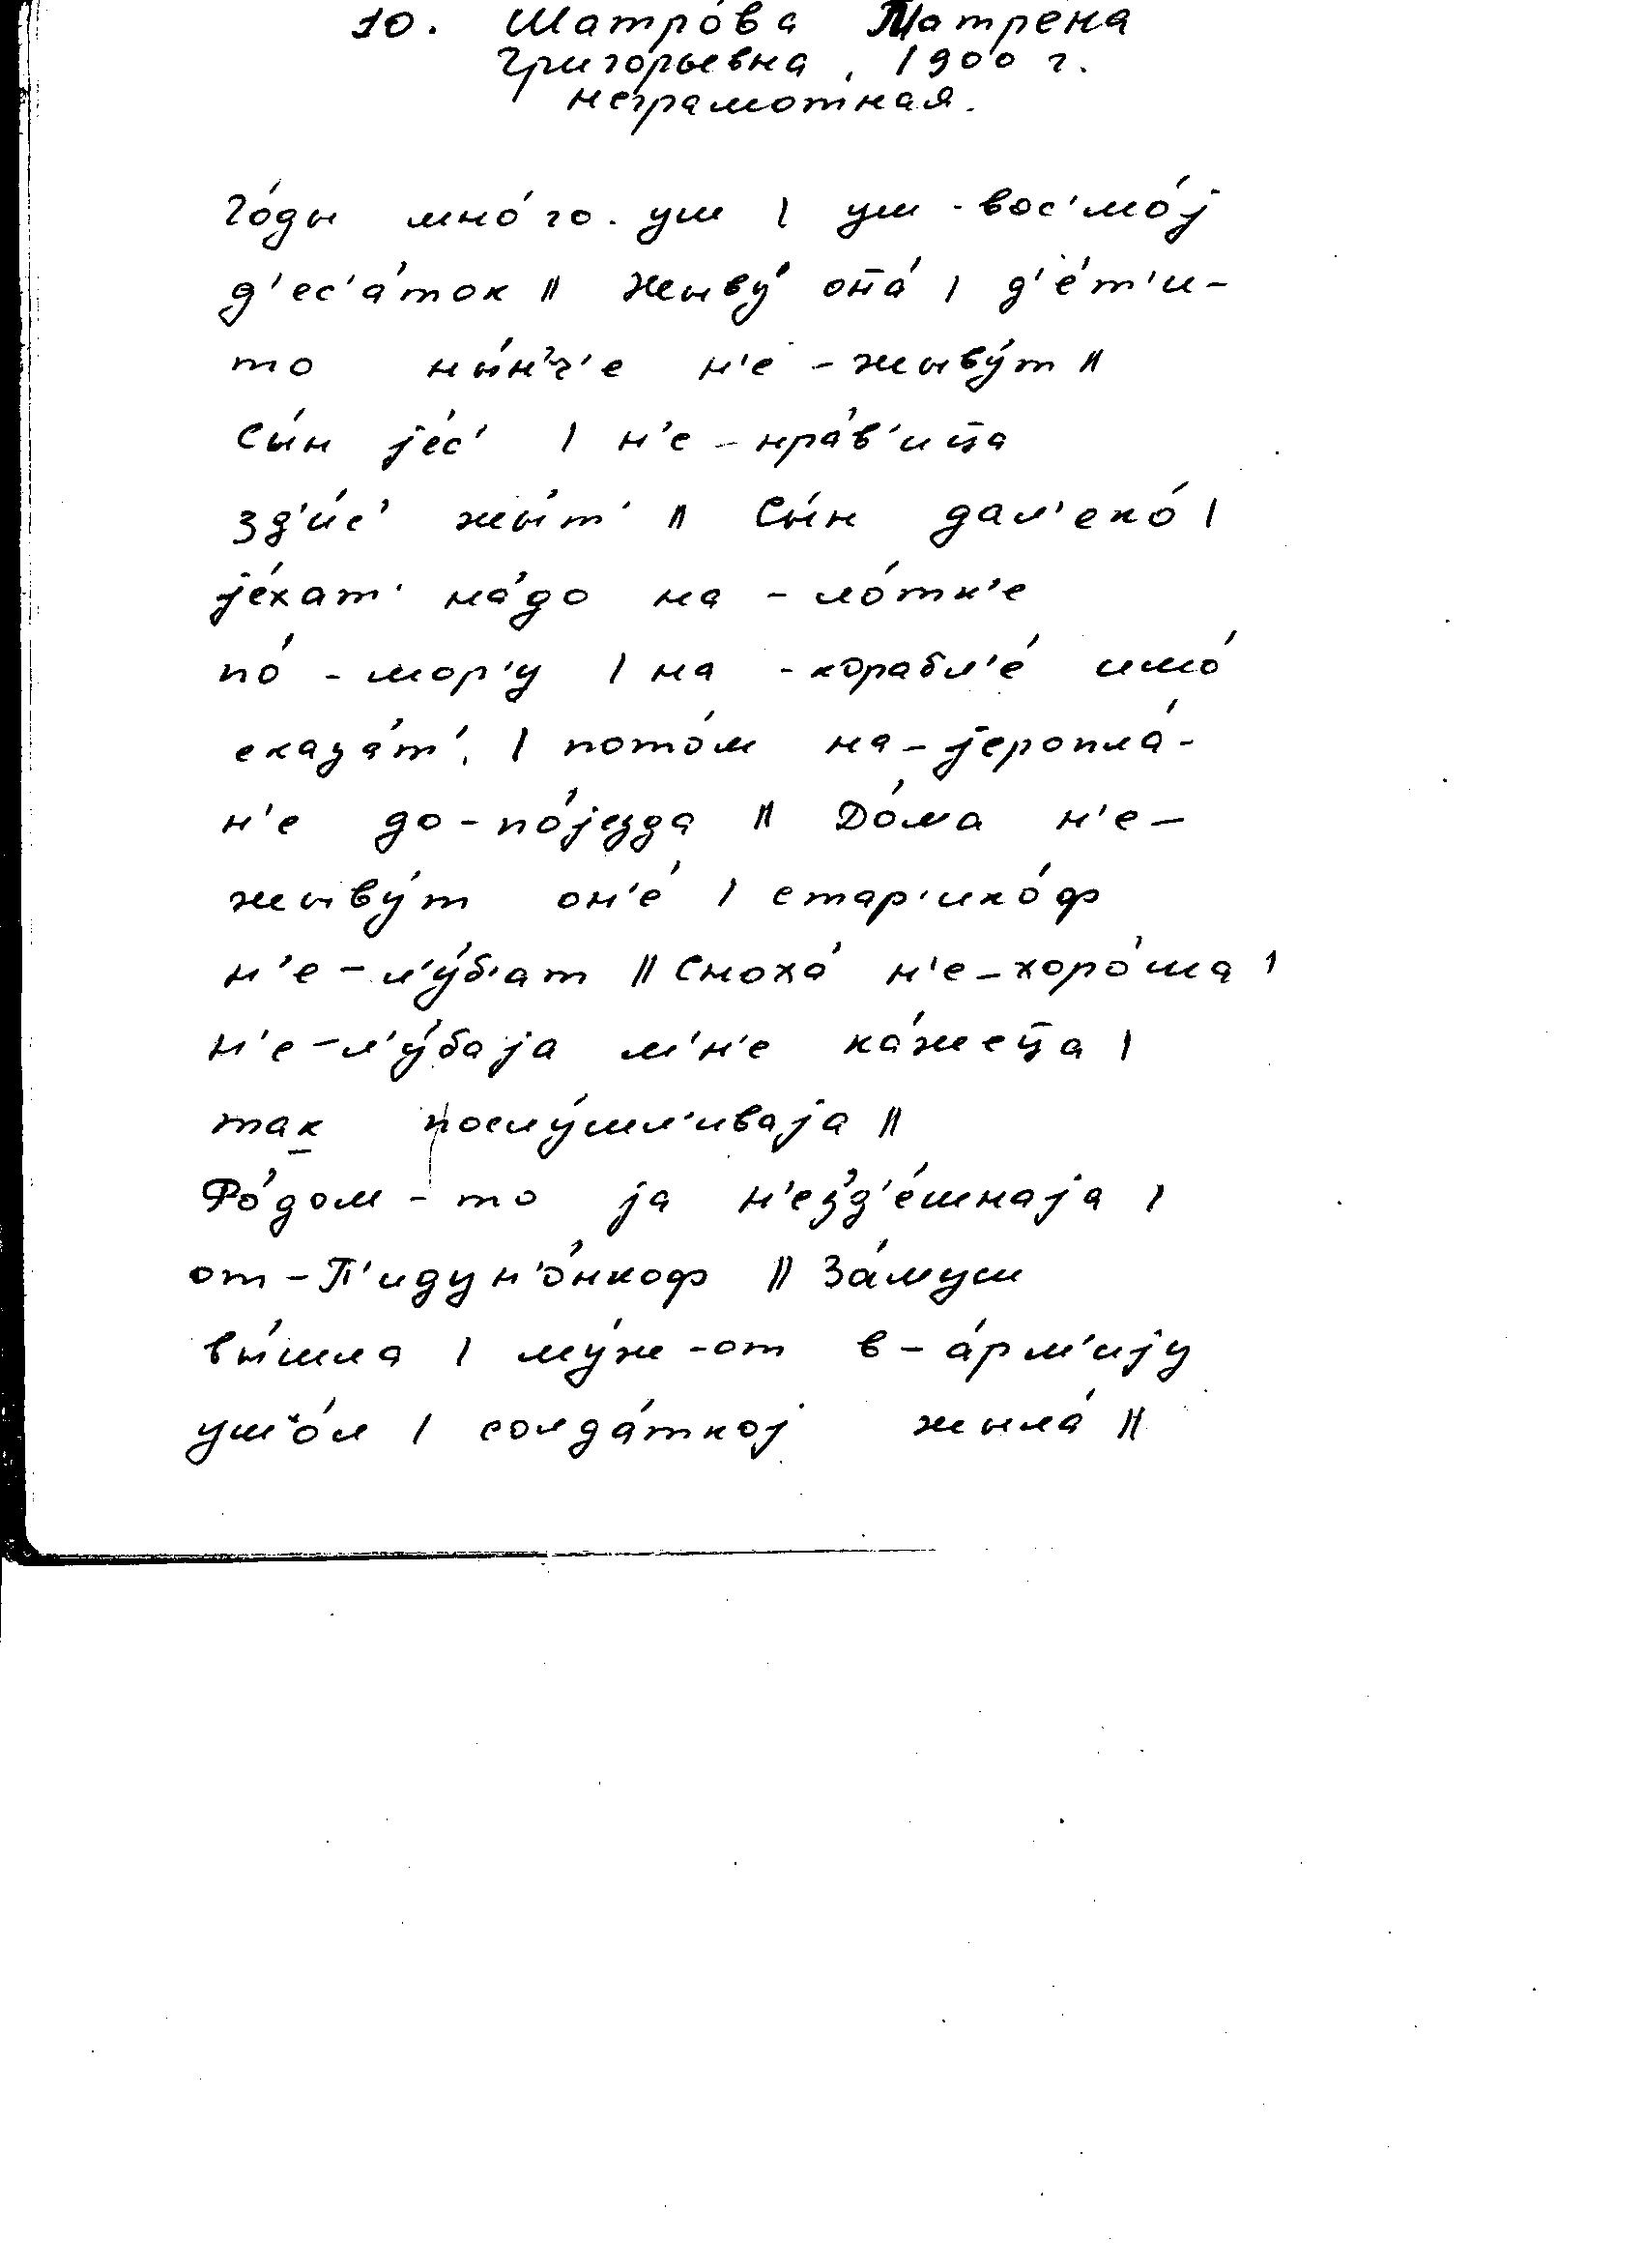 10. Шатро́ва Матрена
Григорьевна, 1900 г.
неграмотная.
Го́ды мно́го-уш | уш-вос'мо́j
д'ес'а́ток || Жыву́ одна́ | д'е́т'и-
то ны́н'ч'е н'е-жыву́т ||
Сы́н jéс' | н'е-нра́в'ица
зд'и́с' жы́т' || Сы́н дал'еко́ |
jéхат' на́до на-ло́тк'е
по́-мор'у | на-корабл'е́ имо́
сказа́т', | пото́м на-jеропла́-
н'е до-по́jезда || До́ма н'е-
жыву́т он'е́ | стар'ико́ф
н'е-л'у́б'ат || Сноха́ н'е-хоро́ша |
н'е-л'у́баjа м'н'е ка́жец̄а |
так послу́шл'иваjа ||
Ро́дом-то jа н'ез'д'е́шнаjа |
от-П'идун'о́нкоф || За́муш
вы́шла | му́ж-от в-а́рм'иjу
уш'о́л | солда́ткоj жыла́ ||